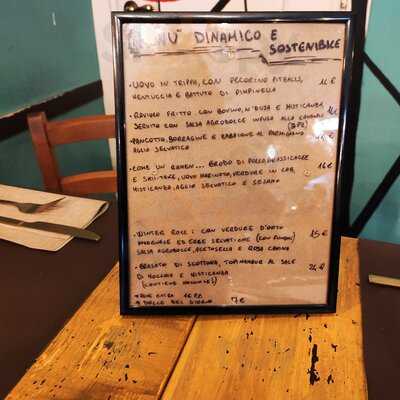 MENU' DINAMICO E
SOSTENIBILE
• UOVO IN TRIPPA, CON PECORINO PITBULL,
MENTUCCIA E BATTUTO DI PIMPINELLA
• RAVIOLO FRITTO CON BOVINO, N'DUJA E MISTICANZA
SERVITO CON SALSA AGRODOLCE
• PANCOTTO, BORRAGINE E ZABAIONE AL PARMIGIANO
AGLIO SELVATICO
• COME UN RAMEN... BRODO DI POLLO,
E SHIITAKE, UOVO MARINATO, VERDURE IN
MISTICANZA, AGLIO SELVATICO E SESAMO 16€
• WINTER ROLL: CON VERDURE D'ORTO
ED ERBE SELVATICHE (CON FUNGHI) 15€
SALSA AGRODOLCE, ACETOSELLA E ROSA CANINA
• BRASATO DI SCOTTONA, TOPINAMBUR AL SALE 24€
DI NOCCIOLE E MISTICANZA
(CONTIENE
• PANE EXTRA
• DOLCE DEL GIORNO 7€